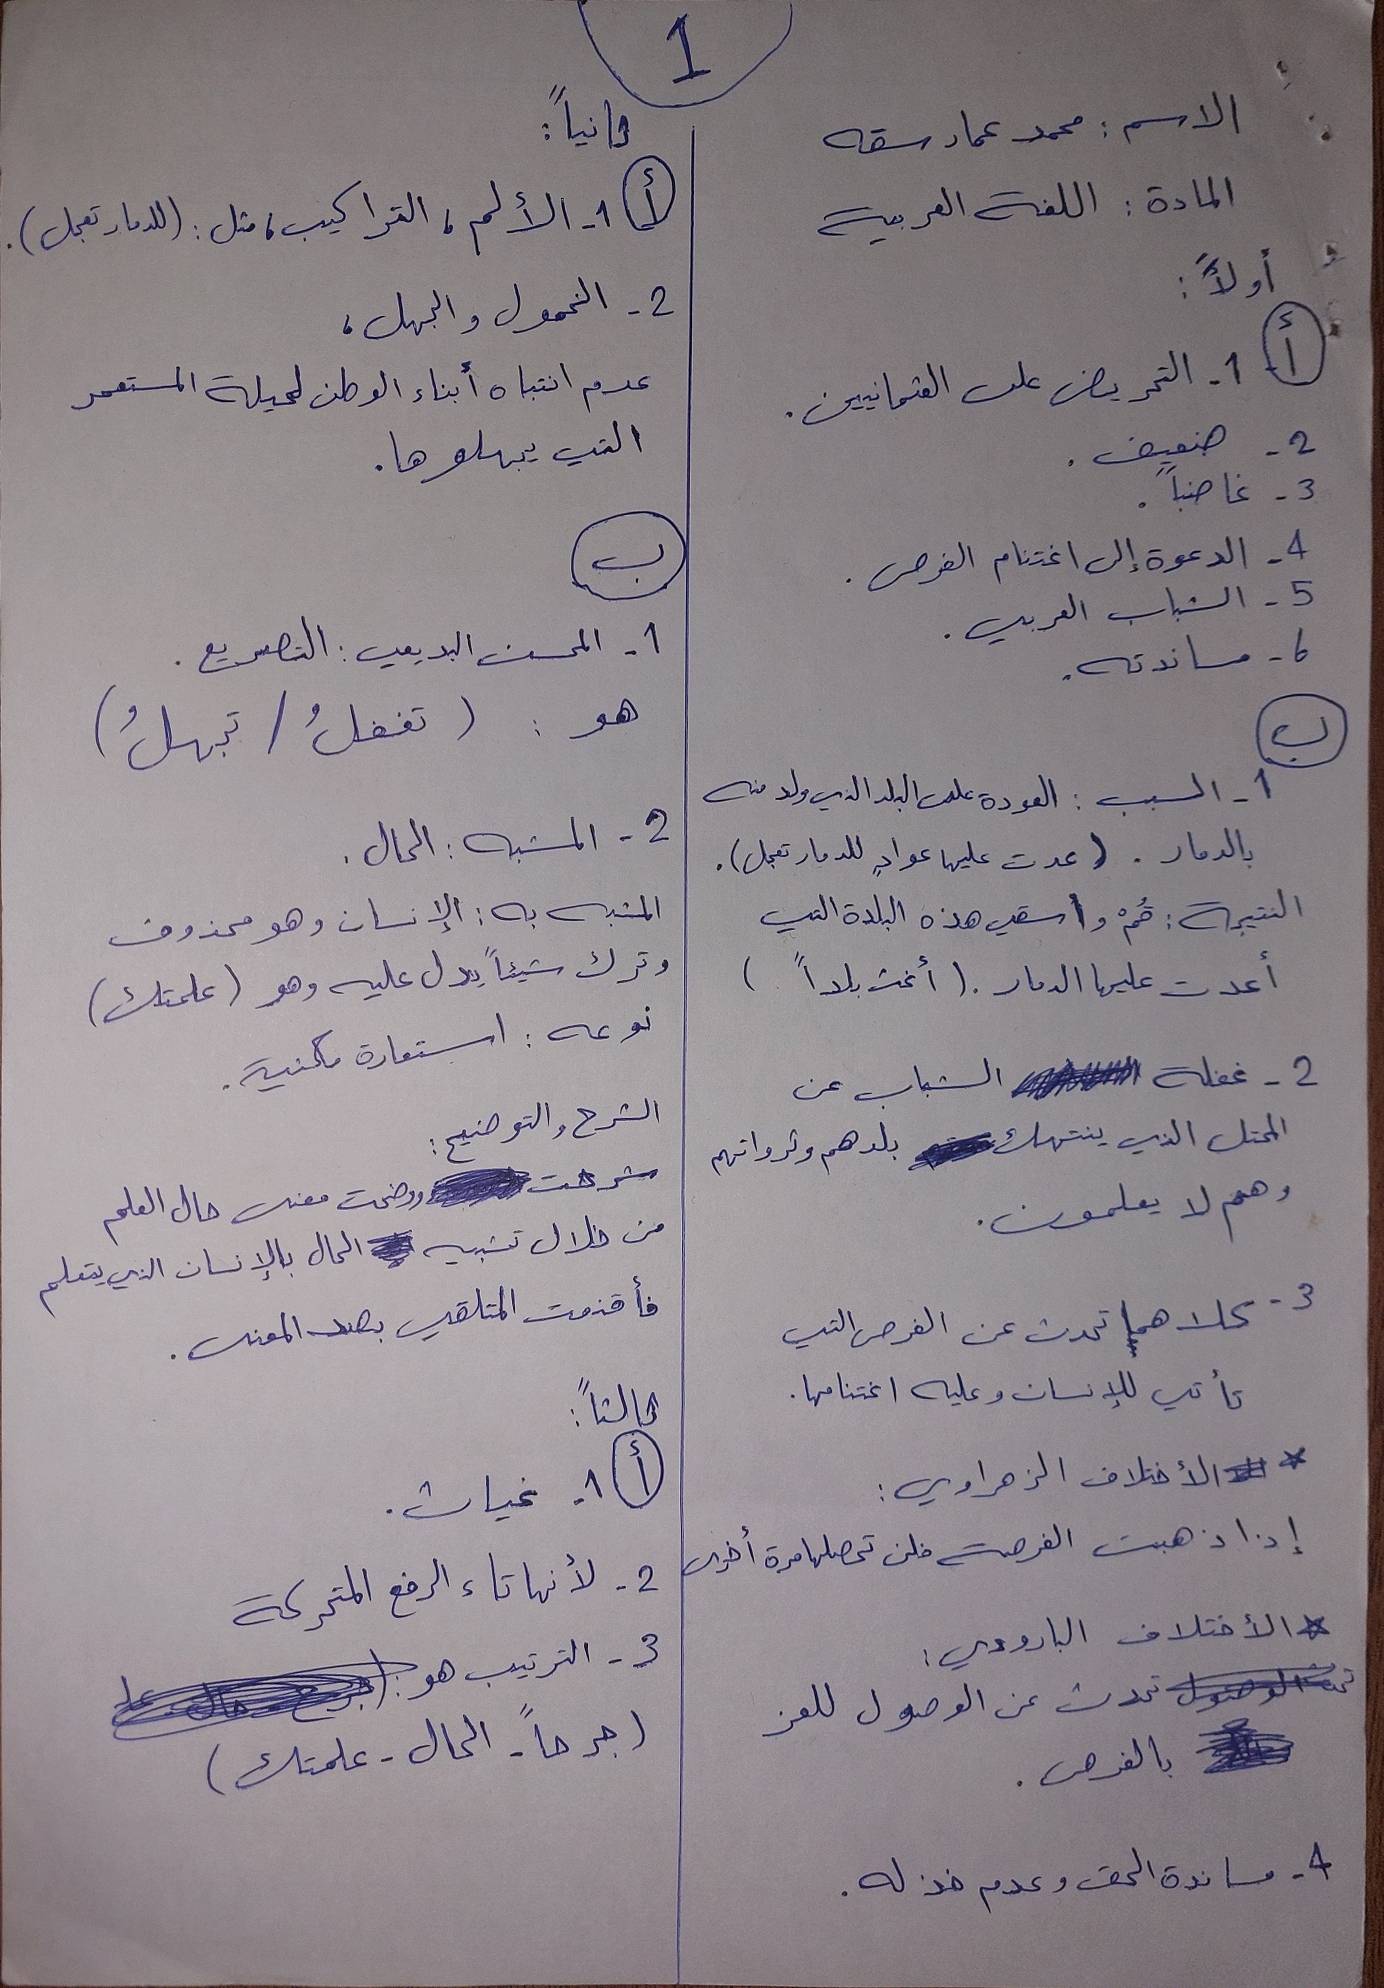 1
الاسم : محمد عماد سقه
المادة : اللغة العربية
أولاً :
أ 1- التحريض على العثمانيين .
2- ضعيف .
3- غاضباً .
4- الدعوة إلى اغتنام الفرص .
5- الشباب العربي .
6- مساندته .
ب
1- السبب : العودة على البلد الذي ولد منه
بالدمار . ( عدت عليها عوادٍ للدمار تعجل ) .
النتيجة : قُمْ واسقي هذه البلدة التي
أعدت عليها الدمار . ( أغث بلداً )
2- غفلة الشباب عن
المحتل الذي ينتهك بلدهم وثرواتهم
وهم لا يعلمون .
3- كلاهما تحدث عن الفرص التي
تأتي للإنسان وعليه اغتنامها .
* الأختلاف الزهراوي :
إذا ذهبت الفرصة فلن تحصلها مرة أخرى
* الأختلاف البارودي :
تحدث عن الوصول للعز
بالفرص .
4- مساندة الحق وعدم خذله .
ثانياً :
أ 1- الألم ، التراكيب ، مثل : ( للدمار تعجل ) .
2- الخمول والجهل ،
عدم انتباه أبناء الوطن لحيلة المستعمر
التي يجهلوها .
ب
1- المحسن البديعي : التصريع .
هو : ( تغفلُ / تجهلُ )
2- المشبه : الحال .
المشبه به : الإنسان وهو محذوف
وترك شيئاً يدل عليه وهو ( علمتك )
نوعه : استعارة مكنية .
الشرح والتوضيح :
شرحت ووضحت معنى حال العلم
من خلال تشبيه الحال بالإنسان الذي يتعلم
فأقنعت المتلقي بصد المعنى .
ثالثاً :
أ 1- غياث .
2- لأنها تاء الرفع المتحركة
3- الترتيب هو :
( جرحاً - الحال - علمتك )